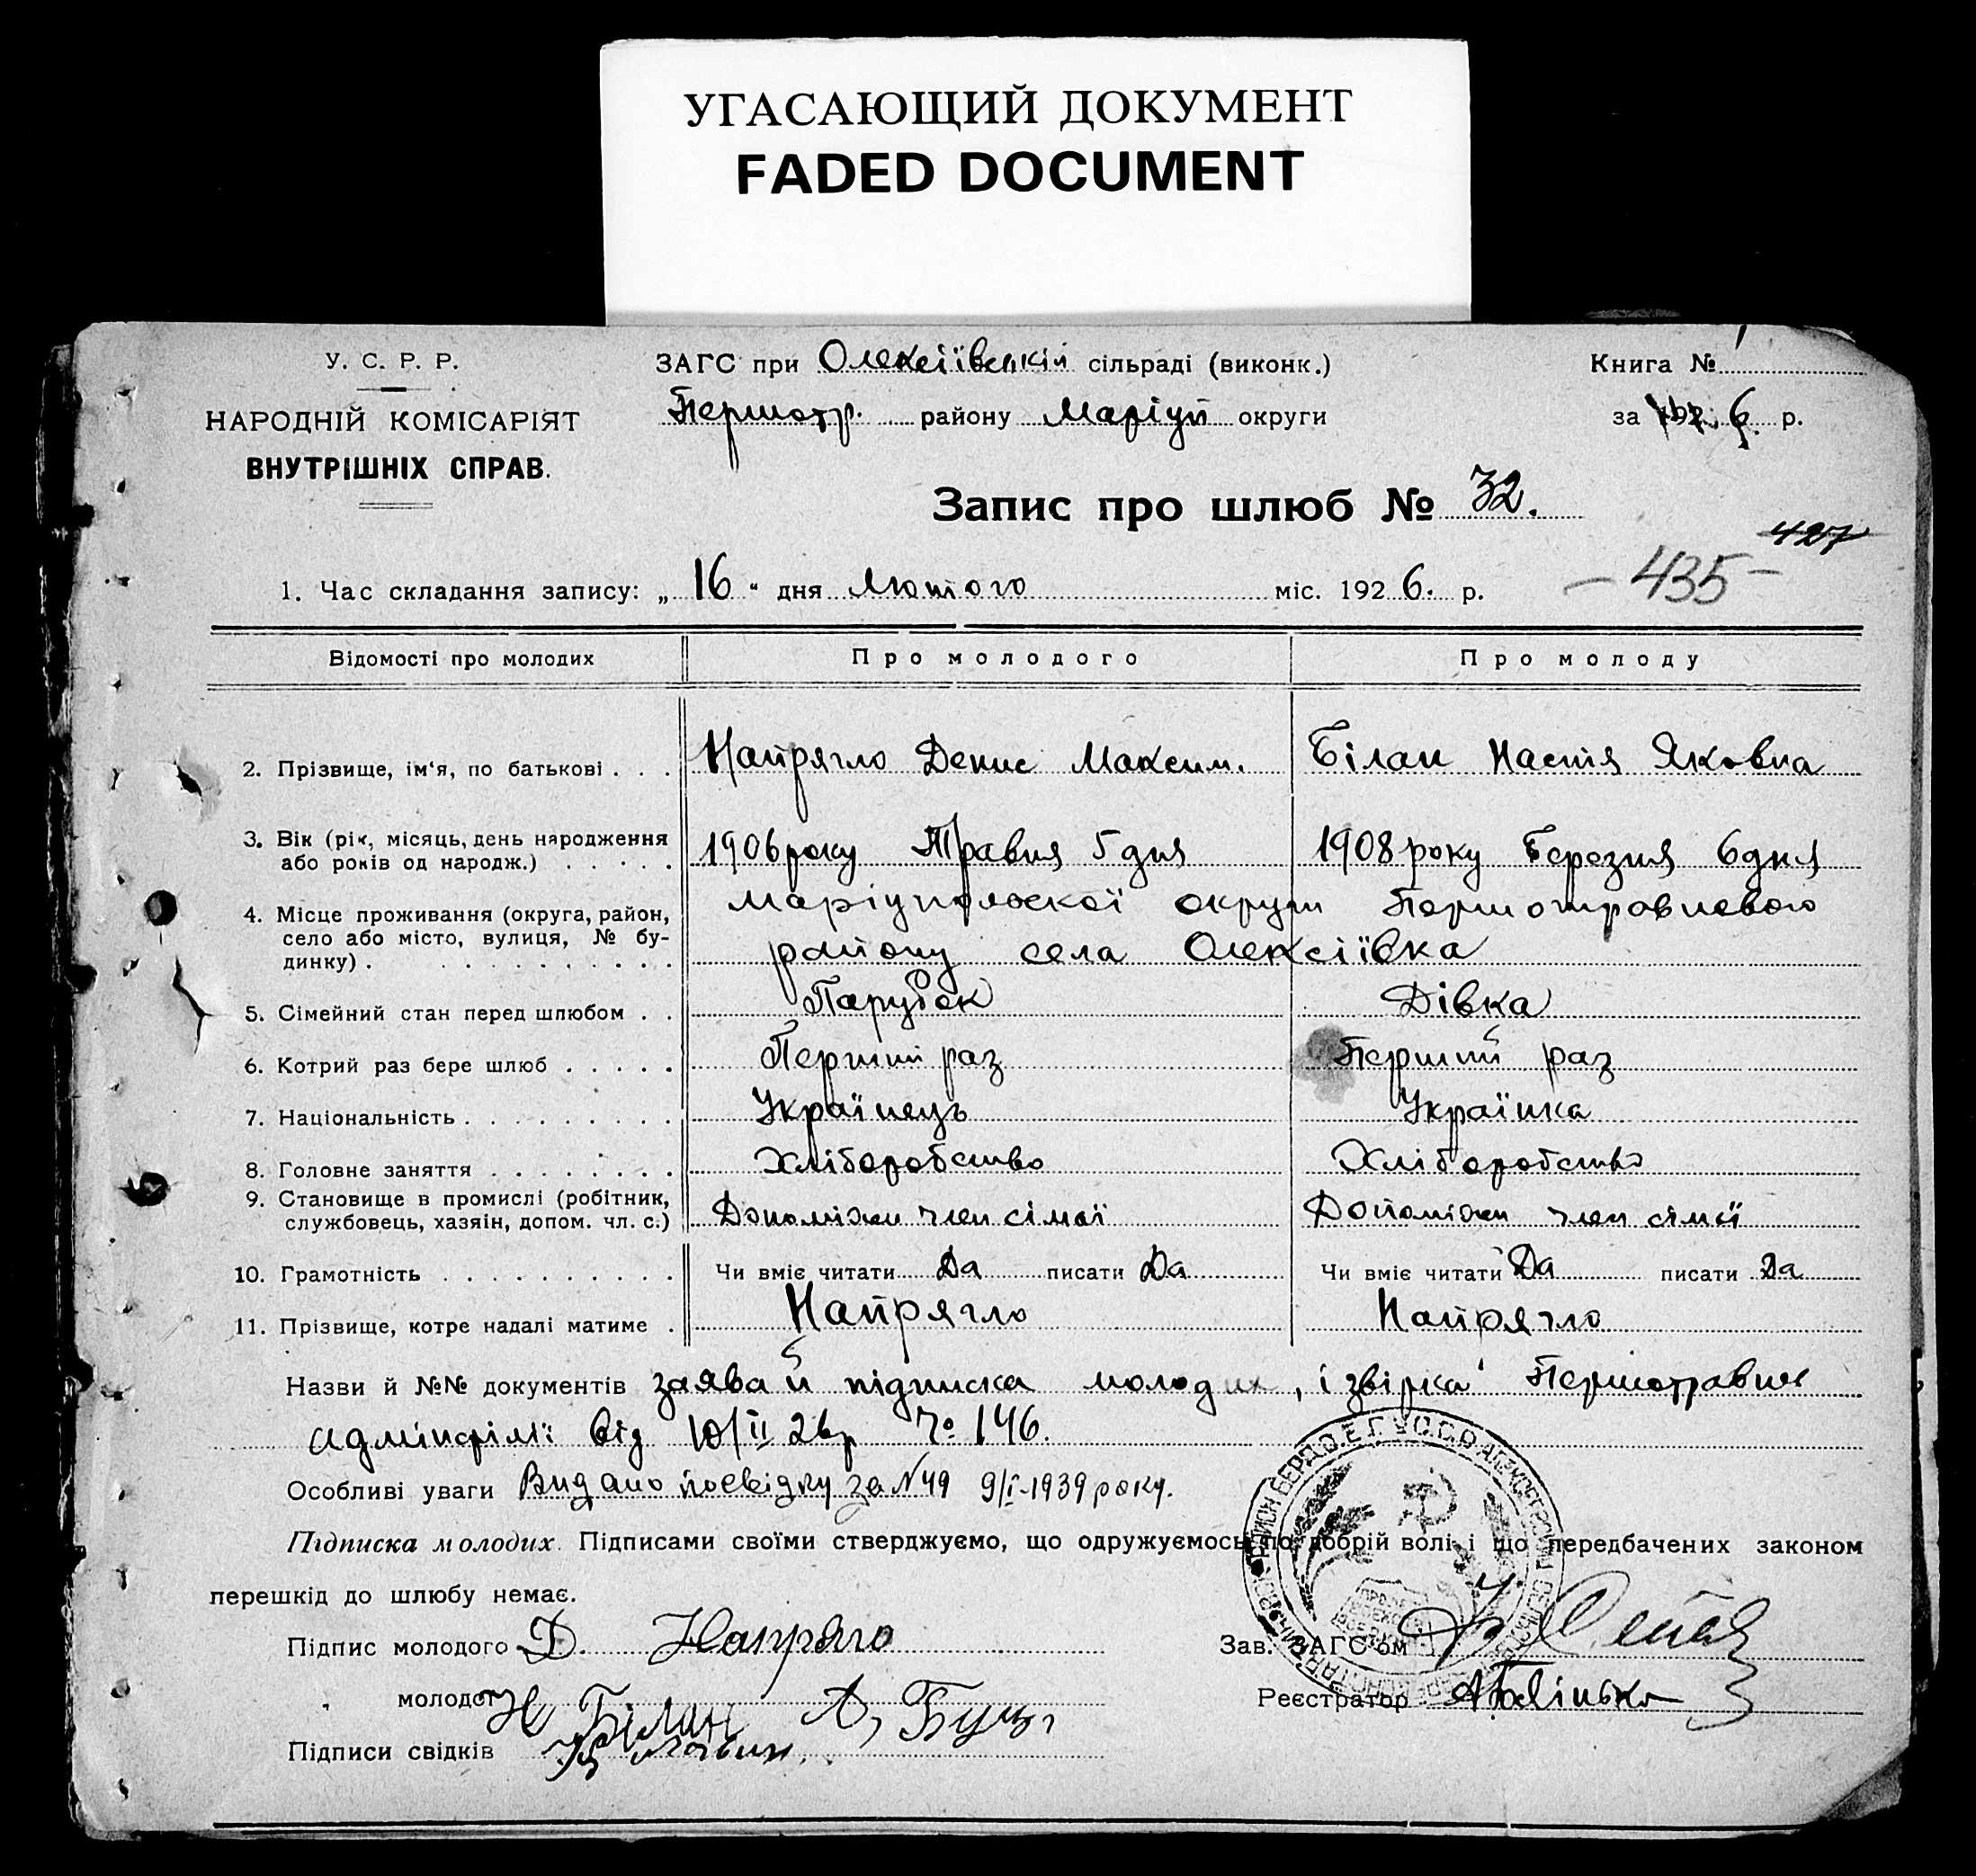 УГАСАЮЩИЙ ДОКУМЕНТ
FADED DOCUMENT
У. С. Р. Р.
НАРОДНІЙ КОМІСАРІЯТ
ВНУТРІШНІХ СПРАВ.
ЗАГС при Олексіївській сільраді (виконк.)
Першотр. району Маріуп округи
Книга № 1
за 192 6 р.
Запис про шлюб № 32.
427
1. Час складання запису: „ 16 “ дня Лютого міс. 192 6. р.
— 435 —
Відомості про молодих Про молодого Про молоду
2. Прізвище, ім'я, по батькові . . . Напрягло Денис Максим. Білан Настя Яковна
3. Вік (рік, місяць, день народження 1906 року Травня 5 дня 1908 року Березня 6 дня
або років од народж.) . . . . .
4. Місце проживання (округа, район, Маріупольскої округи Першотравневого
село або місто, вулиця, № бу- району села Олексіївка
динку) . . . . . . . . . . .
5. Сімейний стан перед шлюбом . . Парубок Дівка
6. Котрий раз бере шлюб . . . . . Перший раз Перший раз
7. Національність . . . . . . . . . Українець Українка
8. Головне заняття . . . . . . . . Хліборобство Хліборобство
9. Становище в промислі (робітник, Допоміжн член сімї Допоміжн член сімї
службовець, хазяін, допом. чл. с.)
10. Грамотність . . . . . . . . . . Чи вміє читати Да писати Да Чи вміє читати Да писати Да
11. Прізвище, котре надалі матиме . Напрягло Напрягло
Назви й №№ документів заява й підписка молодих, і звірка Першотравнев
від 10/II 26р № 146.
Особливі уваги Видано посвідку за N 49 9/I-1939 року.
Підписка молодих. Підписами своїми стверджуємо, що одружуємось по добрій волі і що передбачених законом
перешкід до шлюбу немає.
Підпис молодого Д. Напрягло
Зав. ЗАГС'ом
„ молодої Н Білан
Реєстратор
Підписи свідків